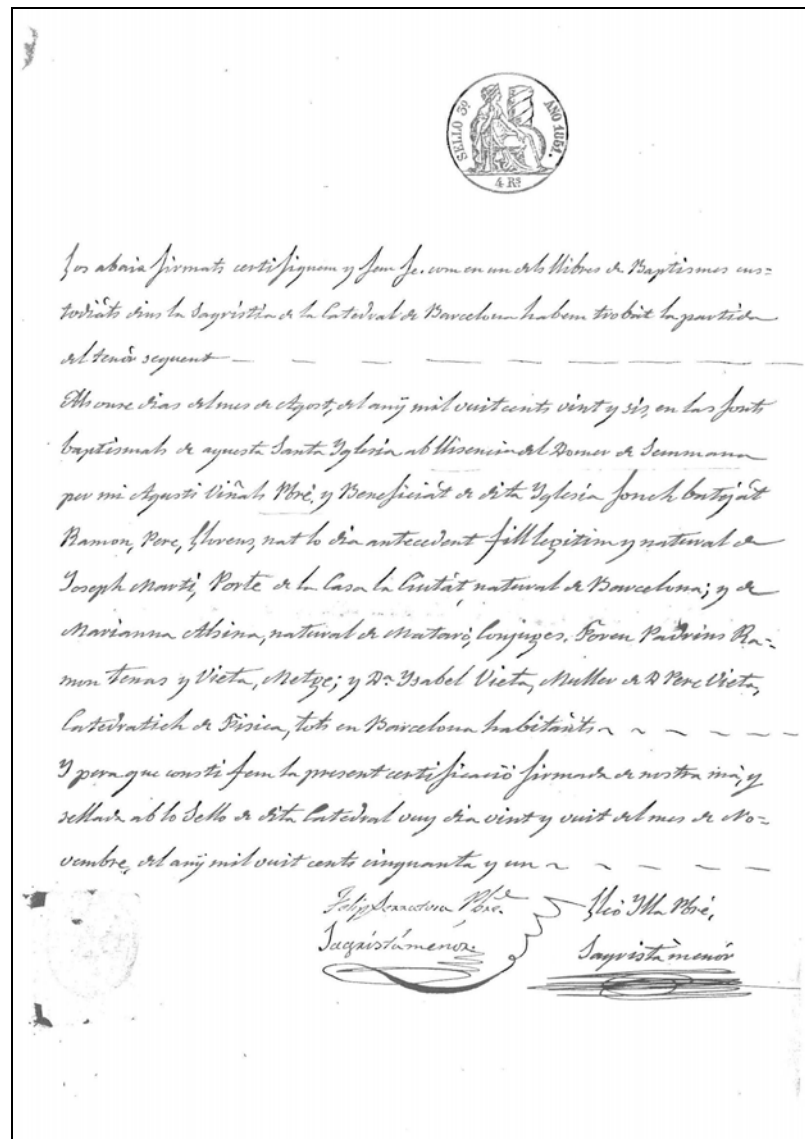 SELLO 3º AÑO 1851.
4 Rs
Los abaix firmats certifiquem y fem fe. com en un dels llibres de Baptismes cus=
todiàts dins la Sagristia de la Catedral de Barcelona habem trobàt la partida
del tenòr seguent
Als onse dias del mes de Agost, del any mil vuit cents vint y sis, en las fonts
baptismals de aquesta Santa Yglesia ab llisencia del Domer de Semmana
per mi Agusti Viñals Pbré, y Beneficiàt de dita Yglesia fonch batejàt
Ramon, Pere, Llorens, nat lo dia antecedent fill legitim y natural de
Joseph Marti, Porte de la Casa la Ciutàt natural de Barcelona; y de
Marianna Alsina, natural de Mataró, Conjuges. Foren Padrins Ra=
mon Tenas y Vieta, Metge; y Dª Ysabel Vieta, Muller de D Pere Vieta,
Catedratich de Fisica, tots en Barcelona habitànts
Y pera que consti fem la present certificació firmada de nostra mà, y
sellada ab lo Sello de dita Catedral vuy dia vint y vuit del mes de No=
vembre, del any mil vuit cents cinquanta y un
Felip Pbre. Lliò Ylla Pbré,
Sagristà menor. Sagristà menór